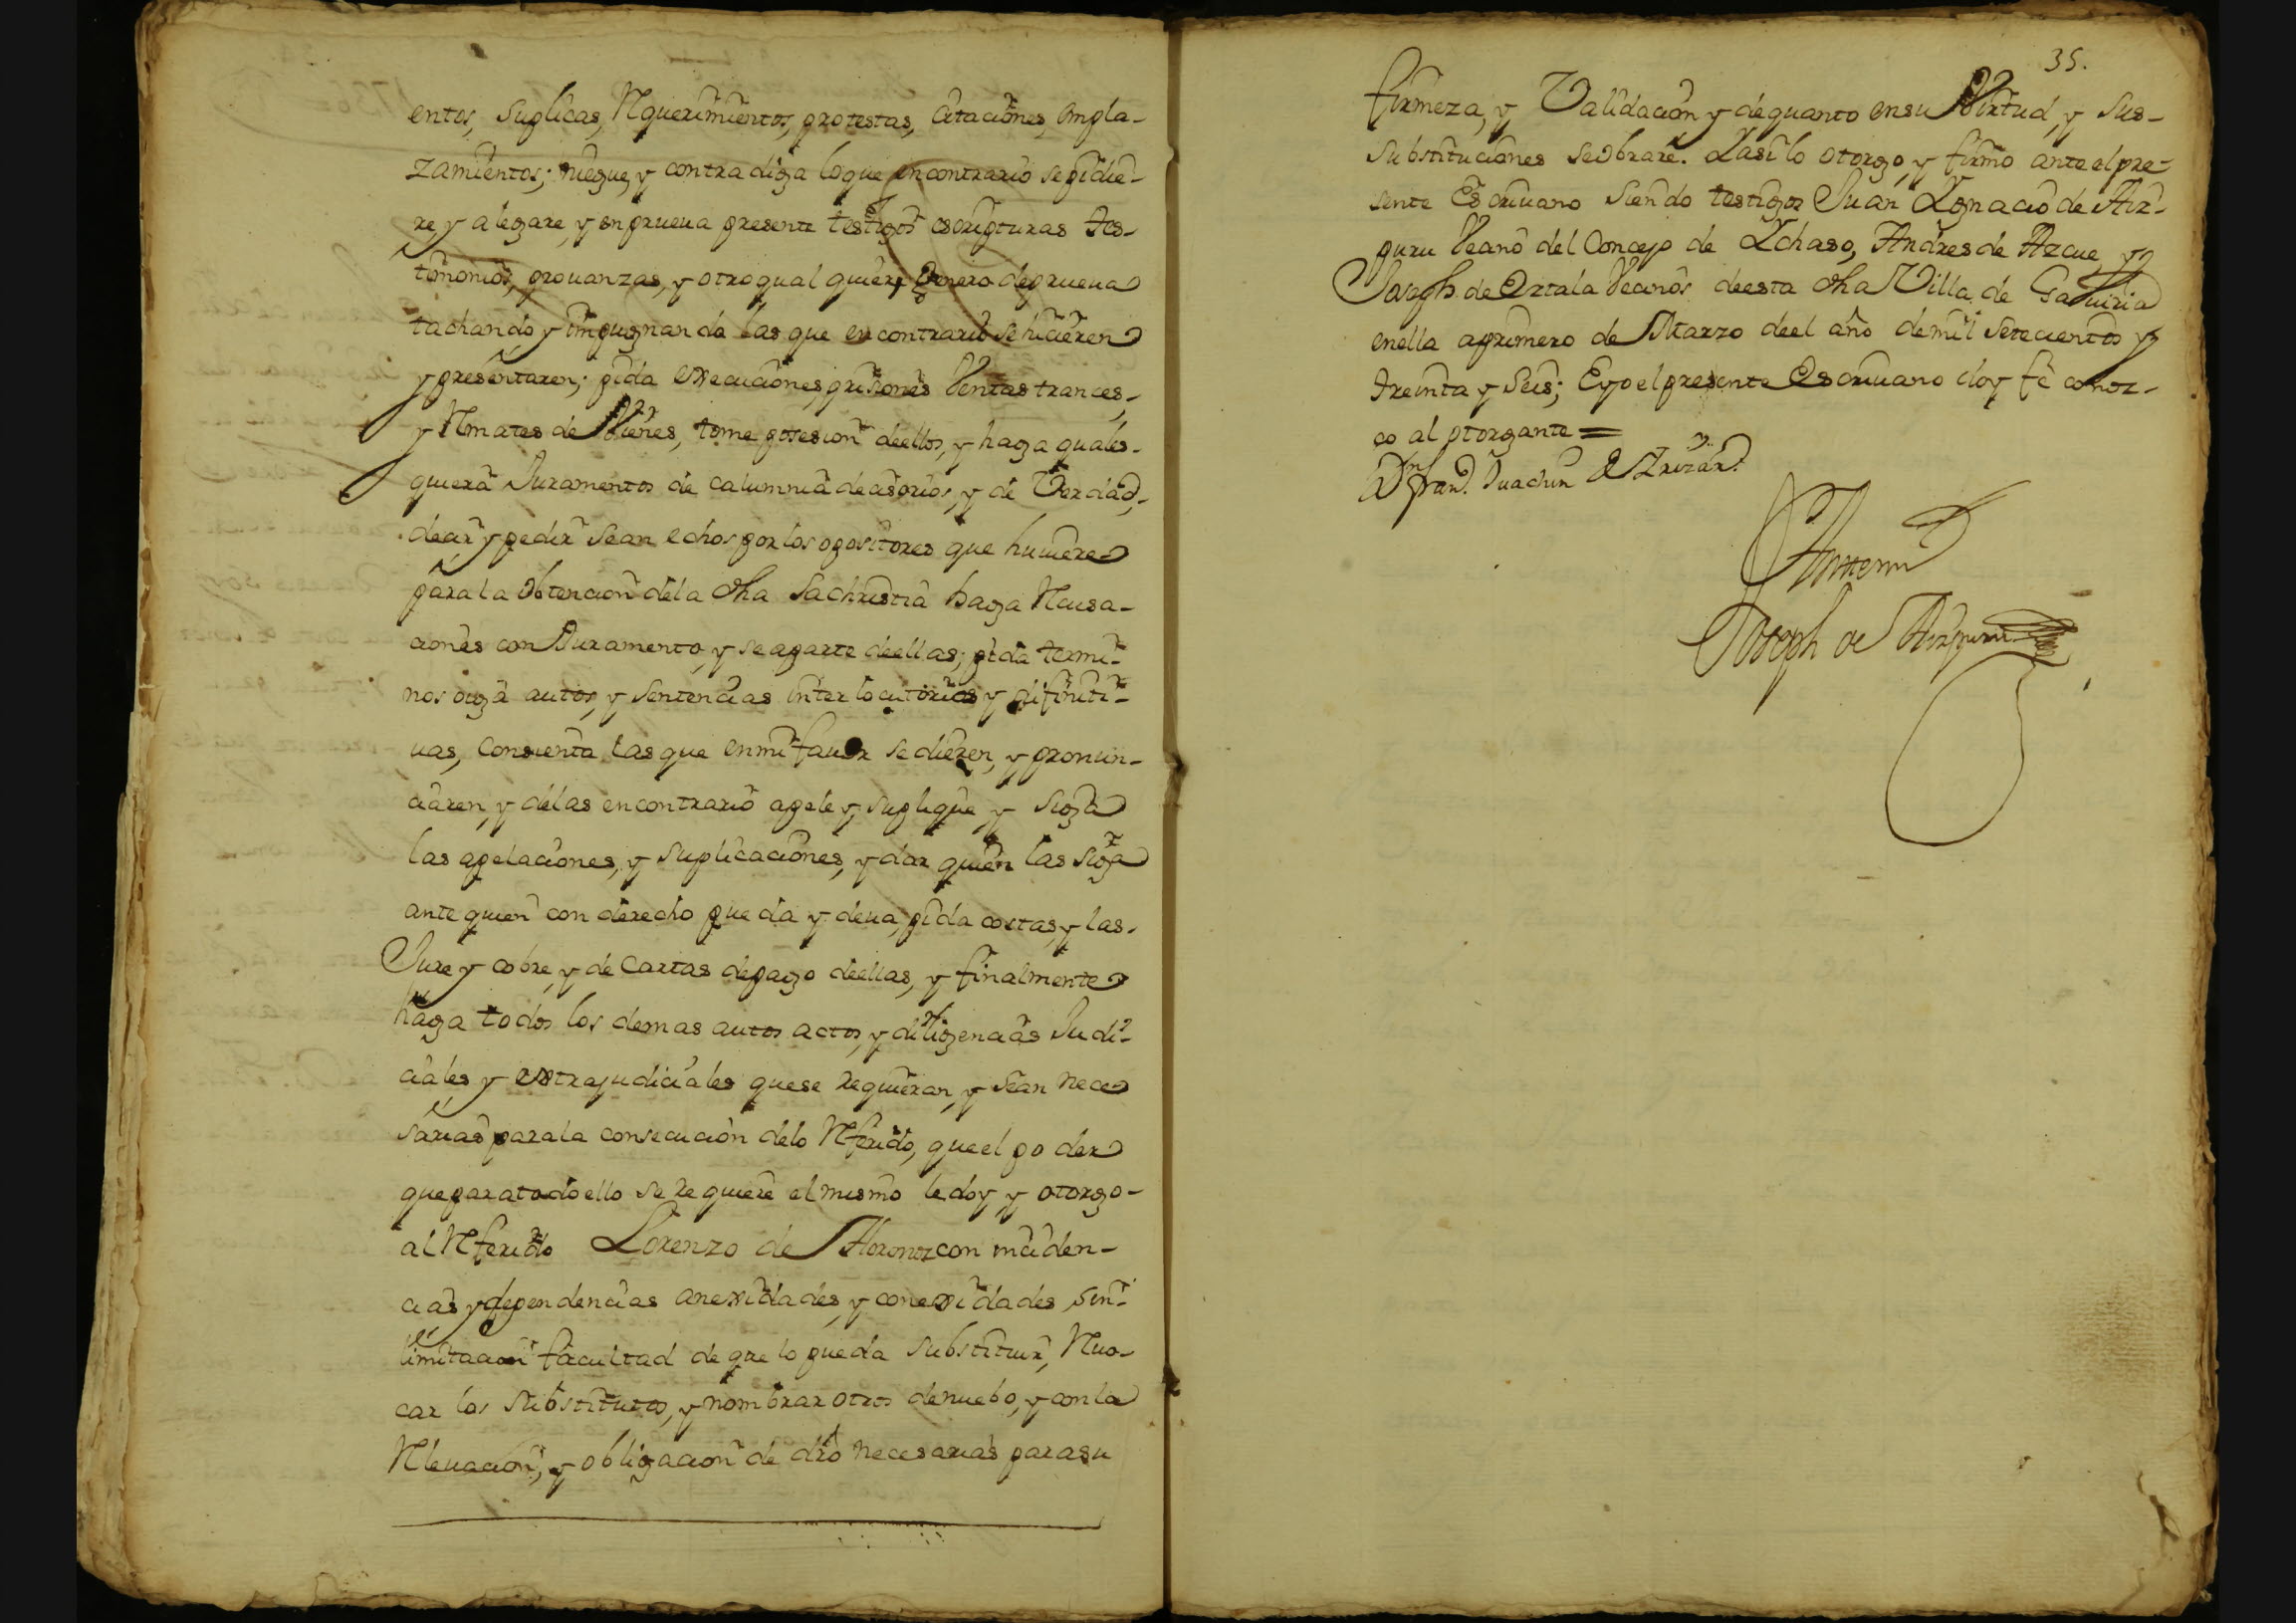 entos, suplicas, Requerimientos, protestas, Citaciones, Empla-
zamientos; niegue, y contradiga loque encontrario sepidie-
re, y alegare, y enprueua presente testigos escripturas tes-
timonios, prouanzas, y otroqual quiera Genero deprueua
tachando, y impugnando las que en contrario se hicieren
y presentaren; pida execuciones, prisiones Ventas trances,
y Remates de Vienes, tome posesion deellos, y haga quales-
quiera Juramentos de calumnia decisorios, y de Verdad,
decir, y pedir sean echos por los opositores que huuiere
para la obtencion dela dha Sachristia haga Recusa-
ciones con Juramento, y se aparte deellas; pida termi-
nos oiga autos, y Sentencias interlocutorias y difiniti-
uas, Consienta las que enmi fauor se dieren, y pronun-
ciaren, y delas encontrario apele, y suplique y siga
las apelaciones, y suplicaciones, y dar quien las siga
ante quien con derecho pueda y deua, pida costas, y las
Jure y cobre, y de Cartas depago deellas, y finalmente
haga todos los demas autos actos, y diligencias Judi-
ciales, y extrajudiciales quese requieran, y sean nece
sarias parala consecucion delo Referido, que el poder
queparatodoello se requiere el mismo le doy y otorgo-
al Referido Lorenzo de con inciden-
cias, y dependencias anexidades, y conexidades sin
limitacion facultad de que lo pueda substituir, Reuo-
car los substitutos, y nombrar otros denuebo, y con la
Releuacion, y obligacion de dro necesarias parasu
35.
firmeza, y Validacion y dequanto ensu Virtud, y sus-
substituciones seobrare. Yasilo otorgo, y firmo ante el pre-
sente Escriuano siendo testigos Juan Ygnacio de Aiz-
puru Vecino del Concejo de Ychaso, Andres de Azcue, y
Joseph de Oztala Vecinos deesta dha Villa de Gauiria
enella aprimero de Marzo deel año demil setecientos y
treinta y seis; Eyo el presente Escriuano doy fe conoz-
co al otorgante =
Dn Franco. Juachin de Irizar
Antemi
Joseph de Aizpuru